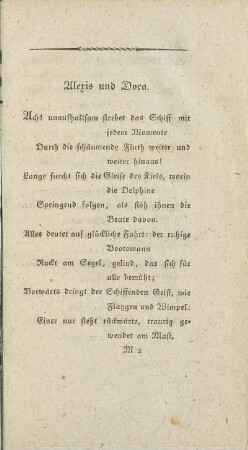 Alexis und Dora.
Ach! unaufhaltsam strebet das Schiff mit
jedem Momente
Durch die schäumende Fluth weiter und
weiter hinaus!
Lange furcht sich die Gleise des Kiels, worin
die Delphine
Springend folgen, als flöh ihnen die
Beute davon.
Alles deutet auf glückliche Fahrt: der ruhige
Bootsmann
Ruckt am Segel, gelind, das sich für
alle bemüht;
Vorwärts dringt der Schiffenden Geist, wie
Flaggen und Wimpel:
Einer nur steht rückwärts, traurig ge-
wendet am Mast,
M 2